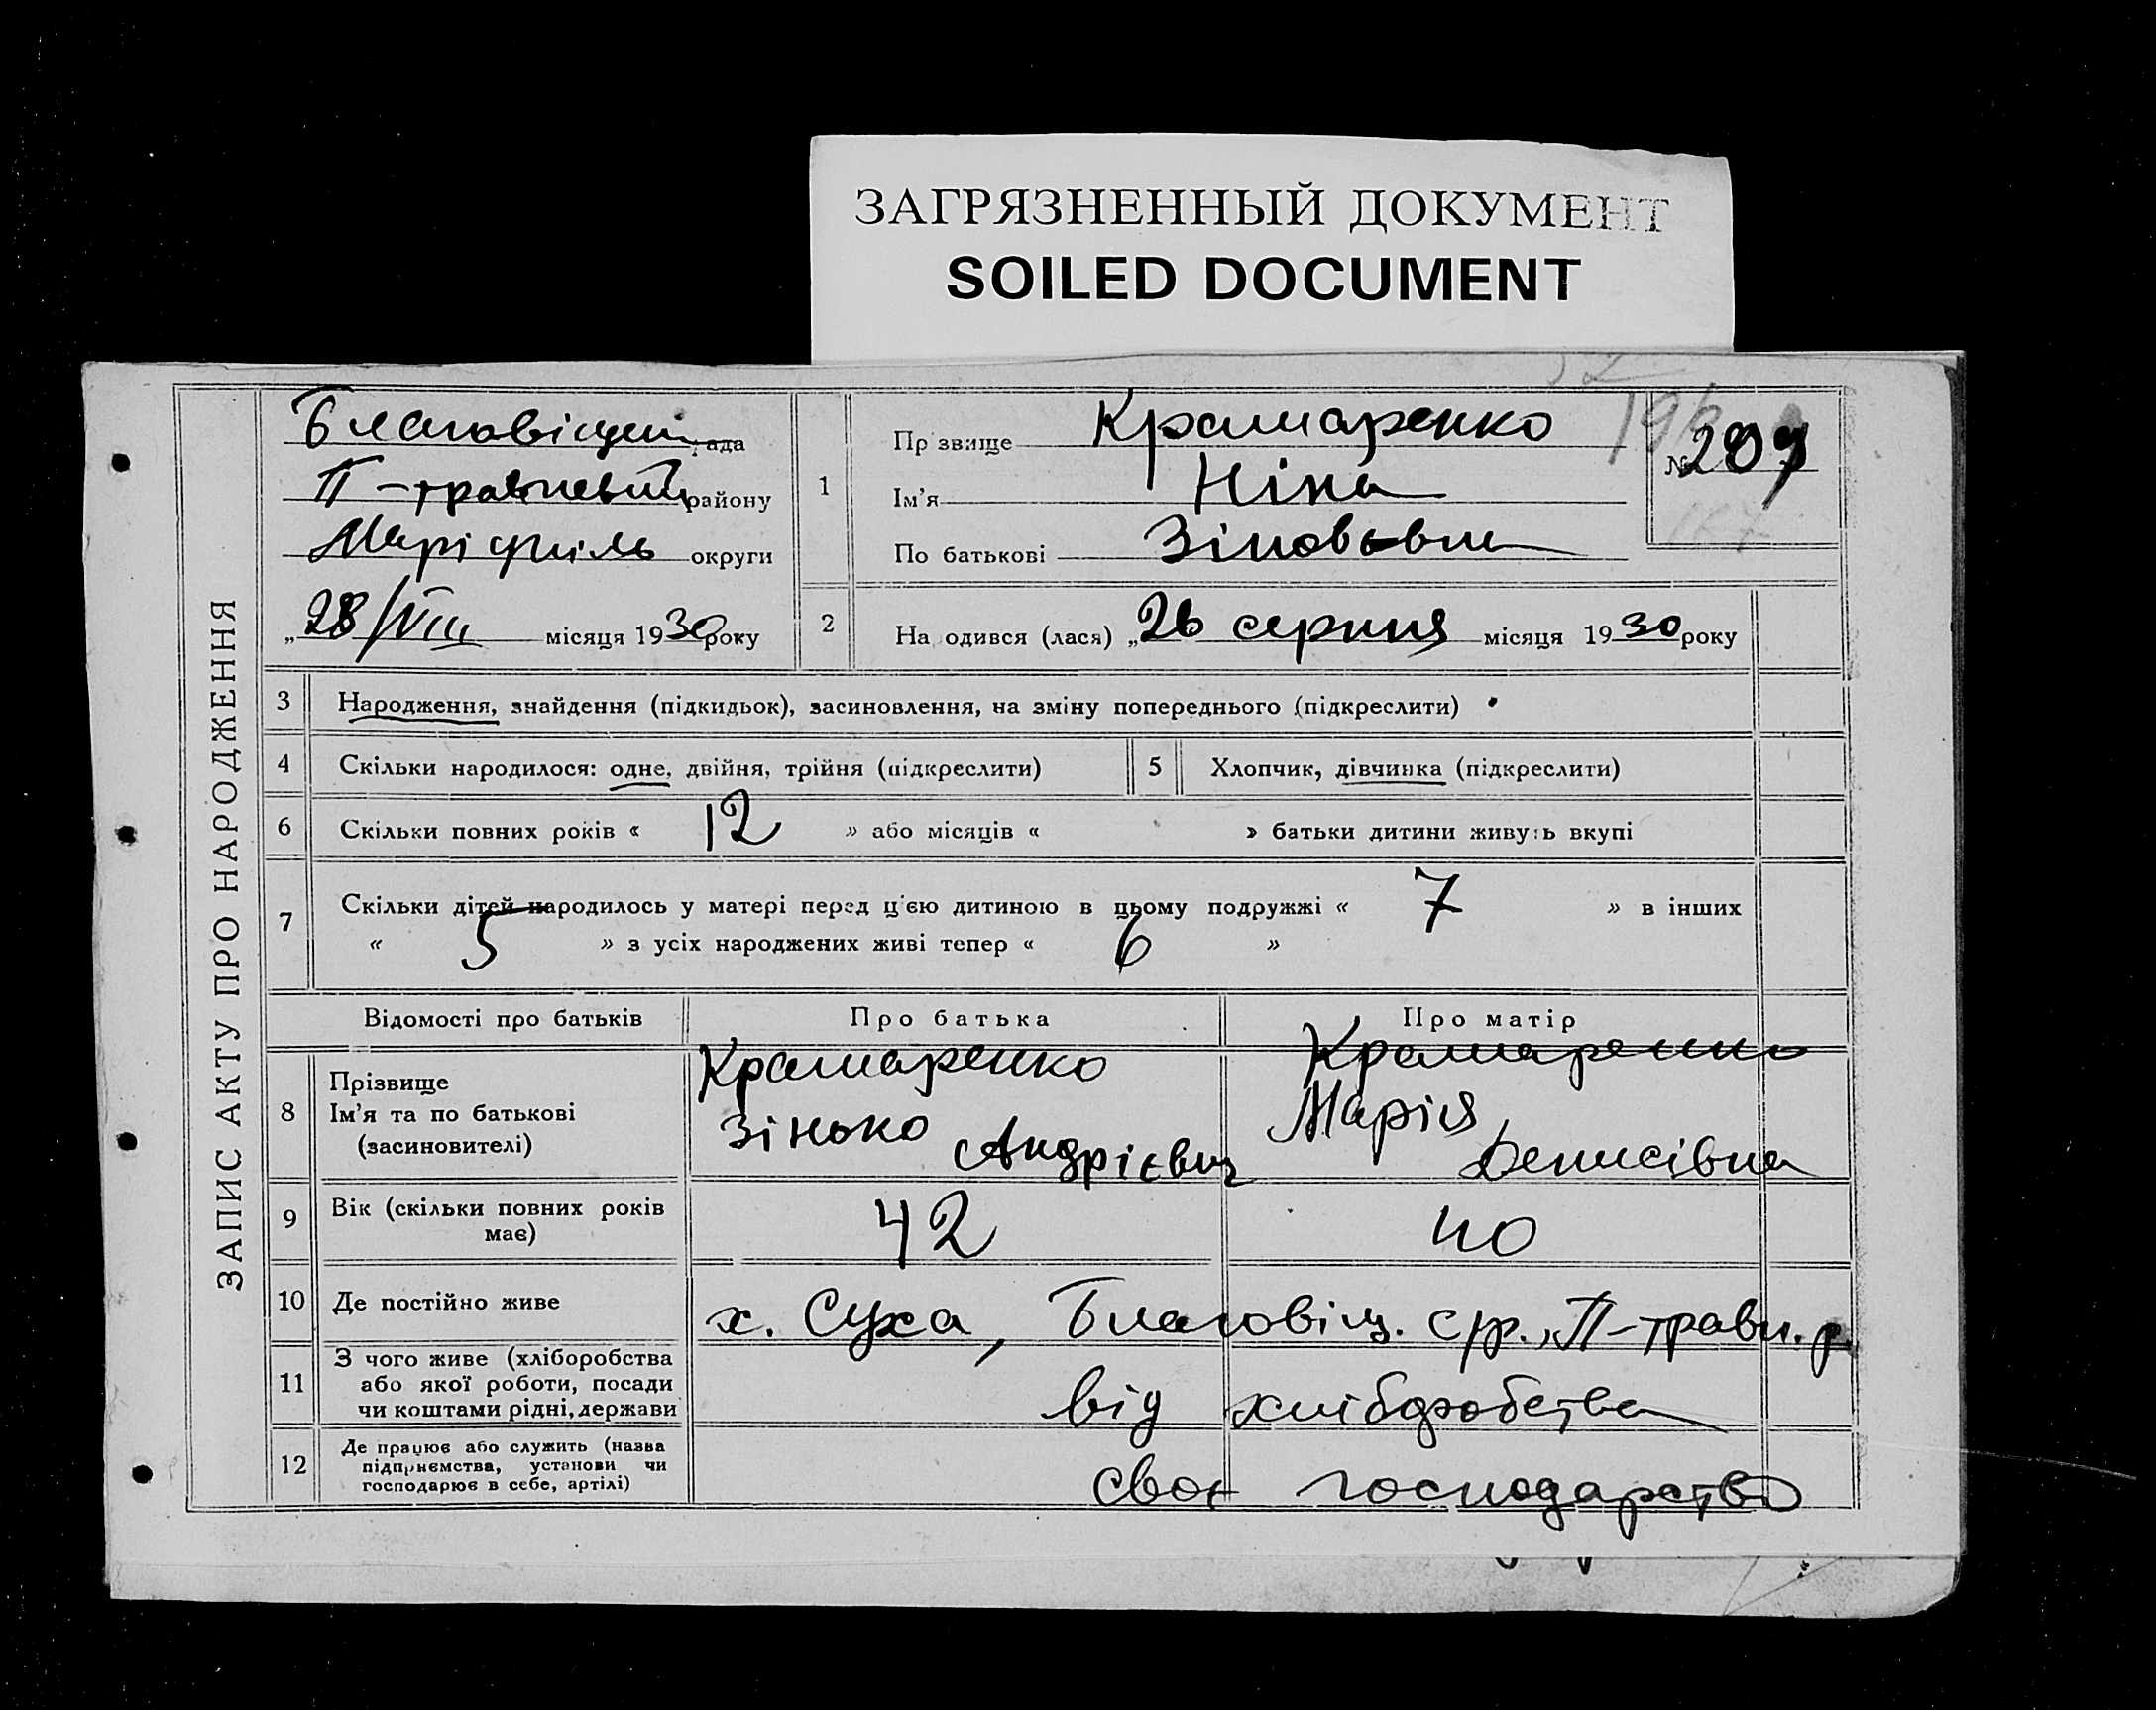 ЗАГРЯЗНЕННЫЙ ДОКУМЕНТ
SOILED DOCUMENT
ЗАПИС АКТУ ПРО НАРОДЖЕННЯ
Благовіщен рада
П-травневий району
Маріюпіль округи
„28/VIII місяця 1930 року
1
Прізвище Крамаренко
Ім’я Ніна
По батькові Зіновьвна
№ 209
2 На одився (лася) „26 серпня місяця 1930 року
3 Народження, знайдення (підкидьок), засиновлення, на зміну попереднього (підкреслити)
4 Скільки народилося: одне, двійня, трійня (підкреслити)
5 Хлопчик, дівчинка (підкреслити)
6 Скільки повних років « 12 » або місяців « » батьки дитини живуть вкупі
7 Скільки дітей народилось у матері перед ц’єю дитиною в цьому подружжі « 7 » в інших
« 5 » з усіх народжених живі тепер « 6 »
Відомості про батьків Про батька Про матір
8
Прізвище
Ім’я та по батькові
(засиновителі)
Крамаренко
Зінько
Андрієвич
Крамаренко
Марія
Денисівна
9 Вік (скільки повних років
має)
42 40
10 Де постійно живе х. Суха, Благовіщ. с/р., П-травн. р.
11 З чого живе (хліборобства
або якої роботи, посади
чи коштами рідні, держави
від хліборобства
12 Де працює або служить (назва
підприємства, установи чи
господарює в себе, артілі)
своє господарство